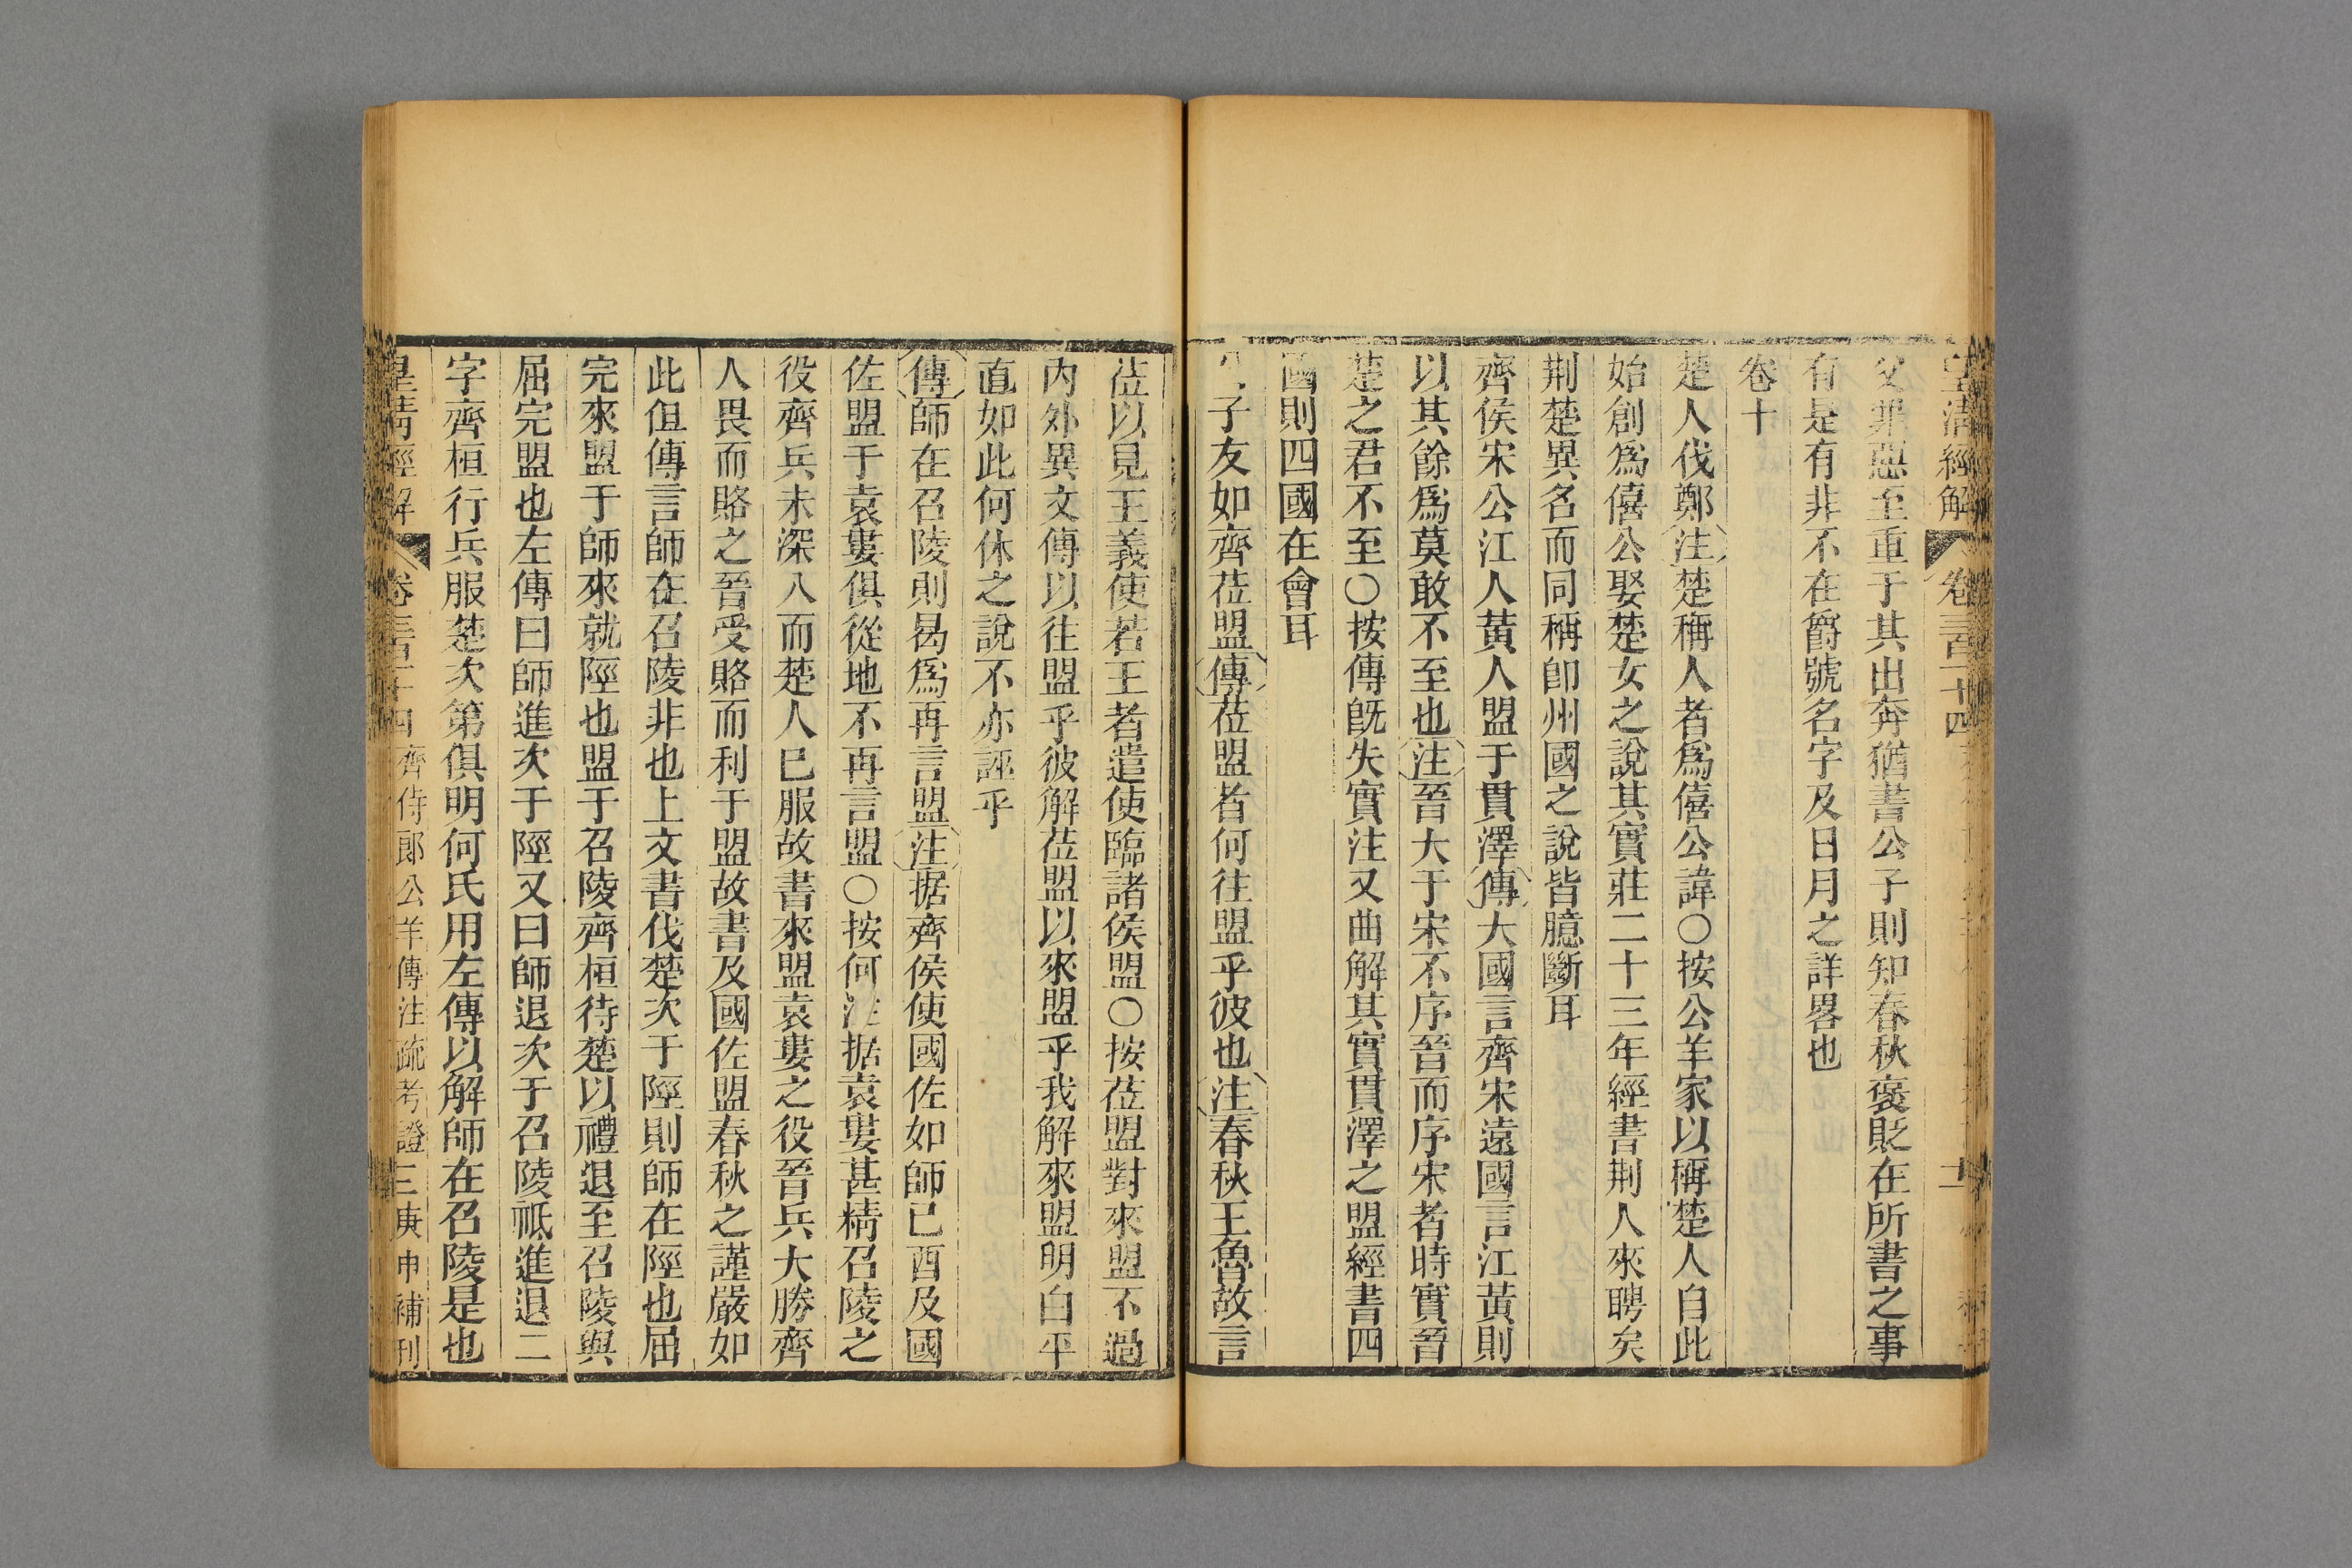 皇清經解 卷三百十四
父罪惡至重于其出奔猶書公子則知春秋褒貶在所書之事
有是有非不在爵號名字及日月之詳畧也
卷十
楚人伐鄭注楚稱人者爲僖公諱○按公羊家以稱楚人自此
始創爲僖公娶楚女之說其實莊二十三年經書荆人來聘矣
荆楚異名而同稱卽州國之說皆臆斷耳
齊侯宋公江人黃人盟于貫澤傳大國言齊宋遠國言江黃則
以其餘爲莫敢不至也注晉大于宋不序晉而序宋者時實晉
楚之君不至○按傳旣失實注又曲解其實貫澤之盟經書四
國則四國在會耳
子友如齊莅盟傳莅盟者何往盟乎彼也注春秋王魯故言
莅以見王義使若王者遣使臨諸侯盟○按莅盟對來盟不過
內外異文傳以往盟乎彼解莅盟以來盟乎我解來盟明白平
直如此何休之說不亦誣乎
傳師在召陵則曷爲再言盟注据齊侯使國佐如師已酉及國
佐盟于袁婁俱從地不再言盟○按何注据袁婁甚精召陵之
役齊兵未深入而楚人已服故書來盟袁婁之役晉兵大勝齊
人畏而賂之晉受賂而利于盟故書及國佐盟春秋之謹嚴如
此但傳言師在召陵非也上文書伐楚次于陘則師在陘也屈
完來盟于師來就陘也盟于召陵齊桓待楚以禮退至召陵與
屈完盟也左傳曰師進次于陘又曰師退次于召陵祗進退二
字齊桓行兵服楚次第俱明何氏用左傳以解師在召陵是也
皇清經解 卷三百十四 齊侍郞公羊傳注疏考證 三 庚申補刊